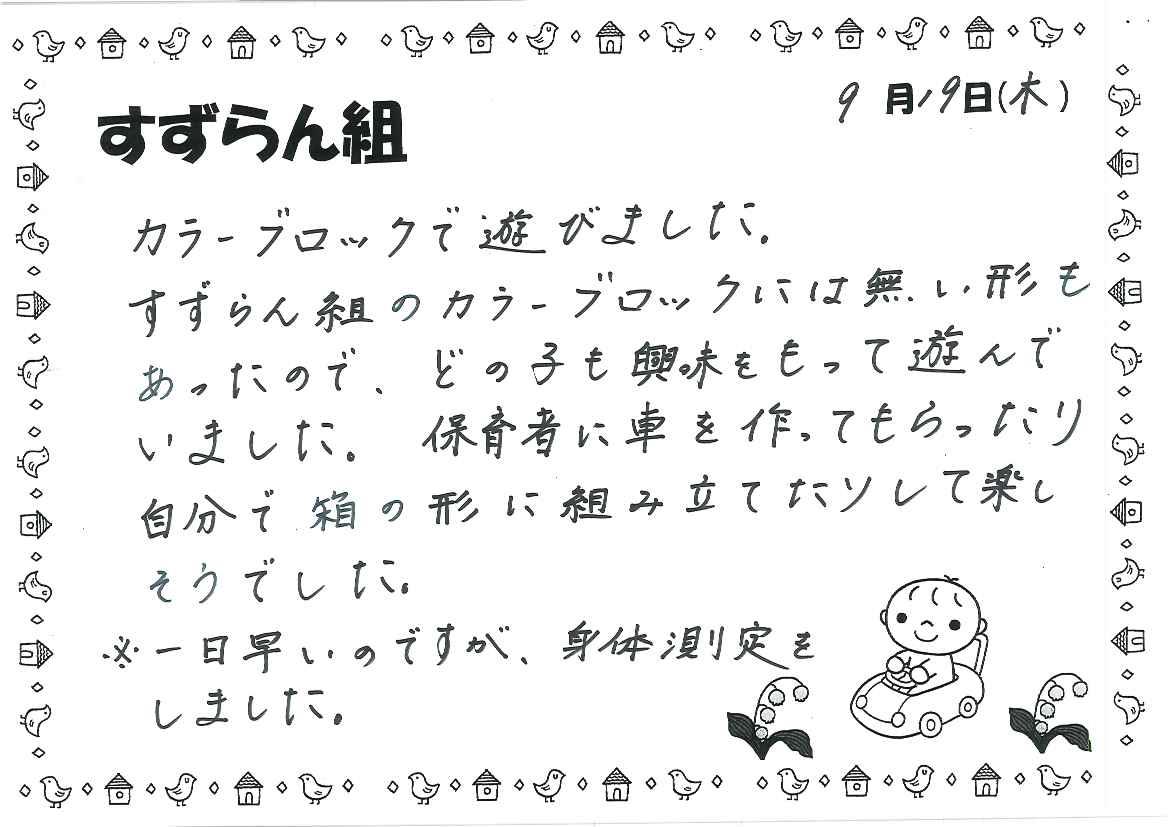 9月19日(木)
すずらん組
カラーブロックで遊びました。
すずらん組のカラーブロックには無い形も
あったので、どの子も興味をもって遊んで
いました。保育者に車を作ってもらったり
自分で箱の形に組み立てたりして楽し
そうでした。
※一日早いのですが、身体測定を
しました。